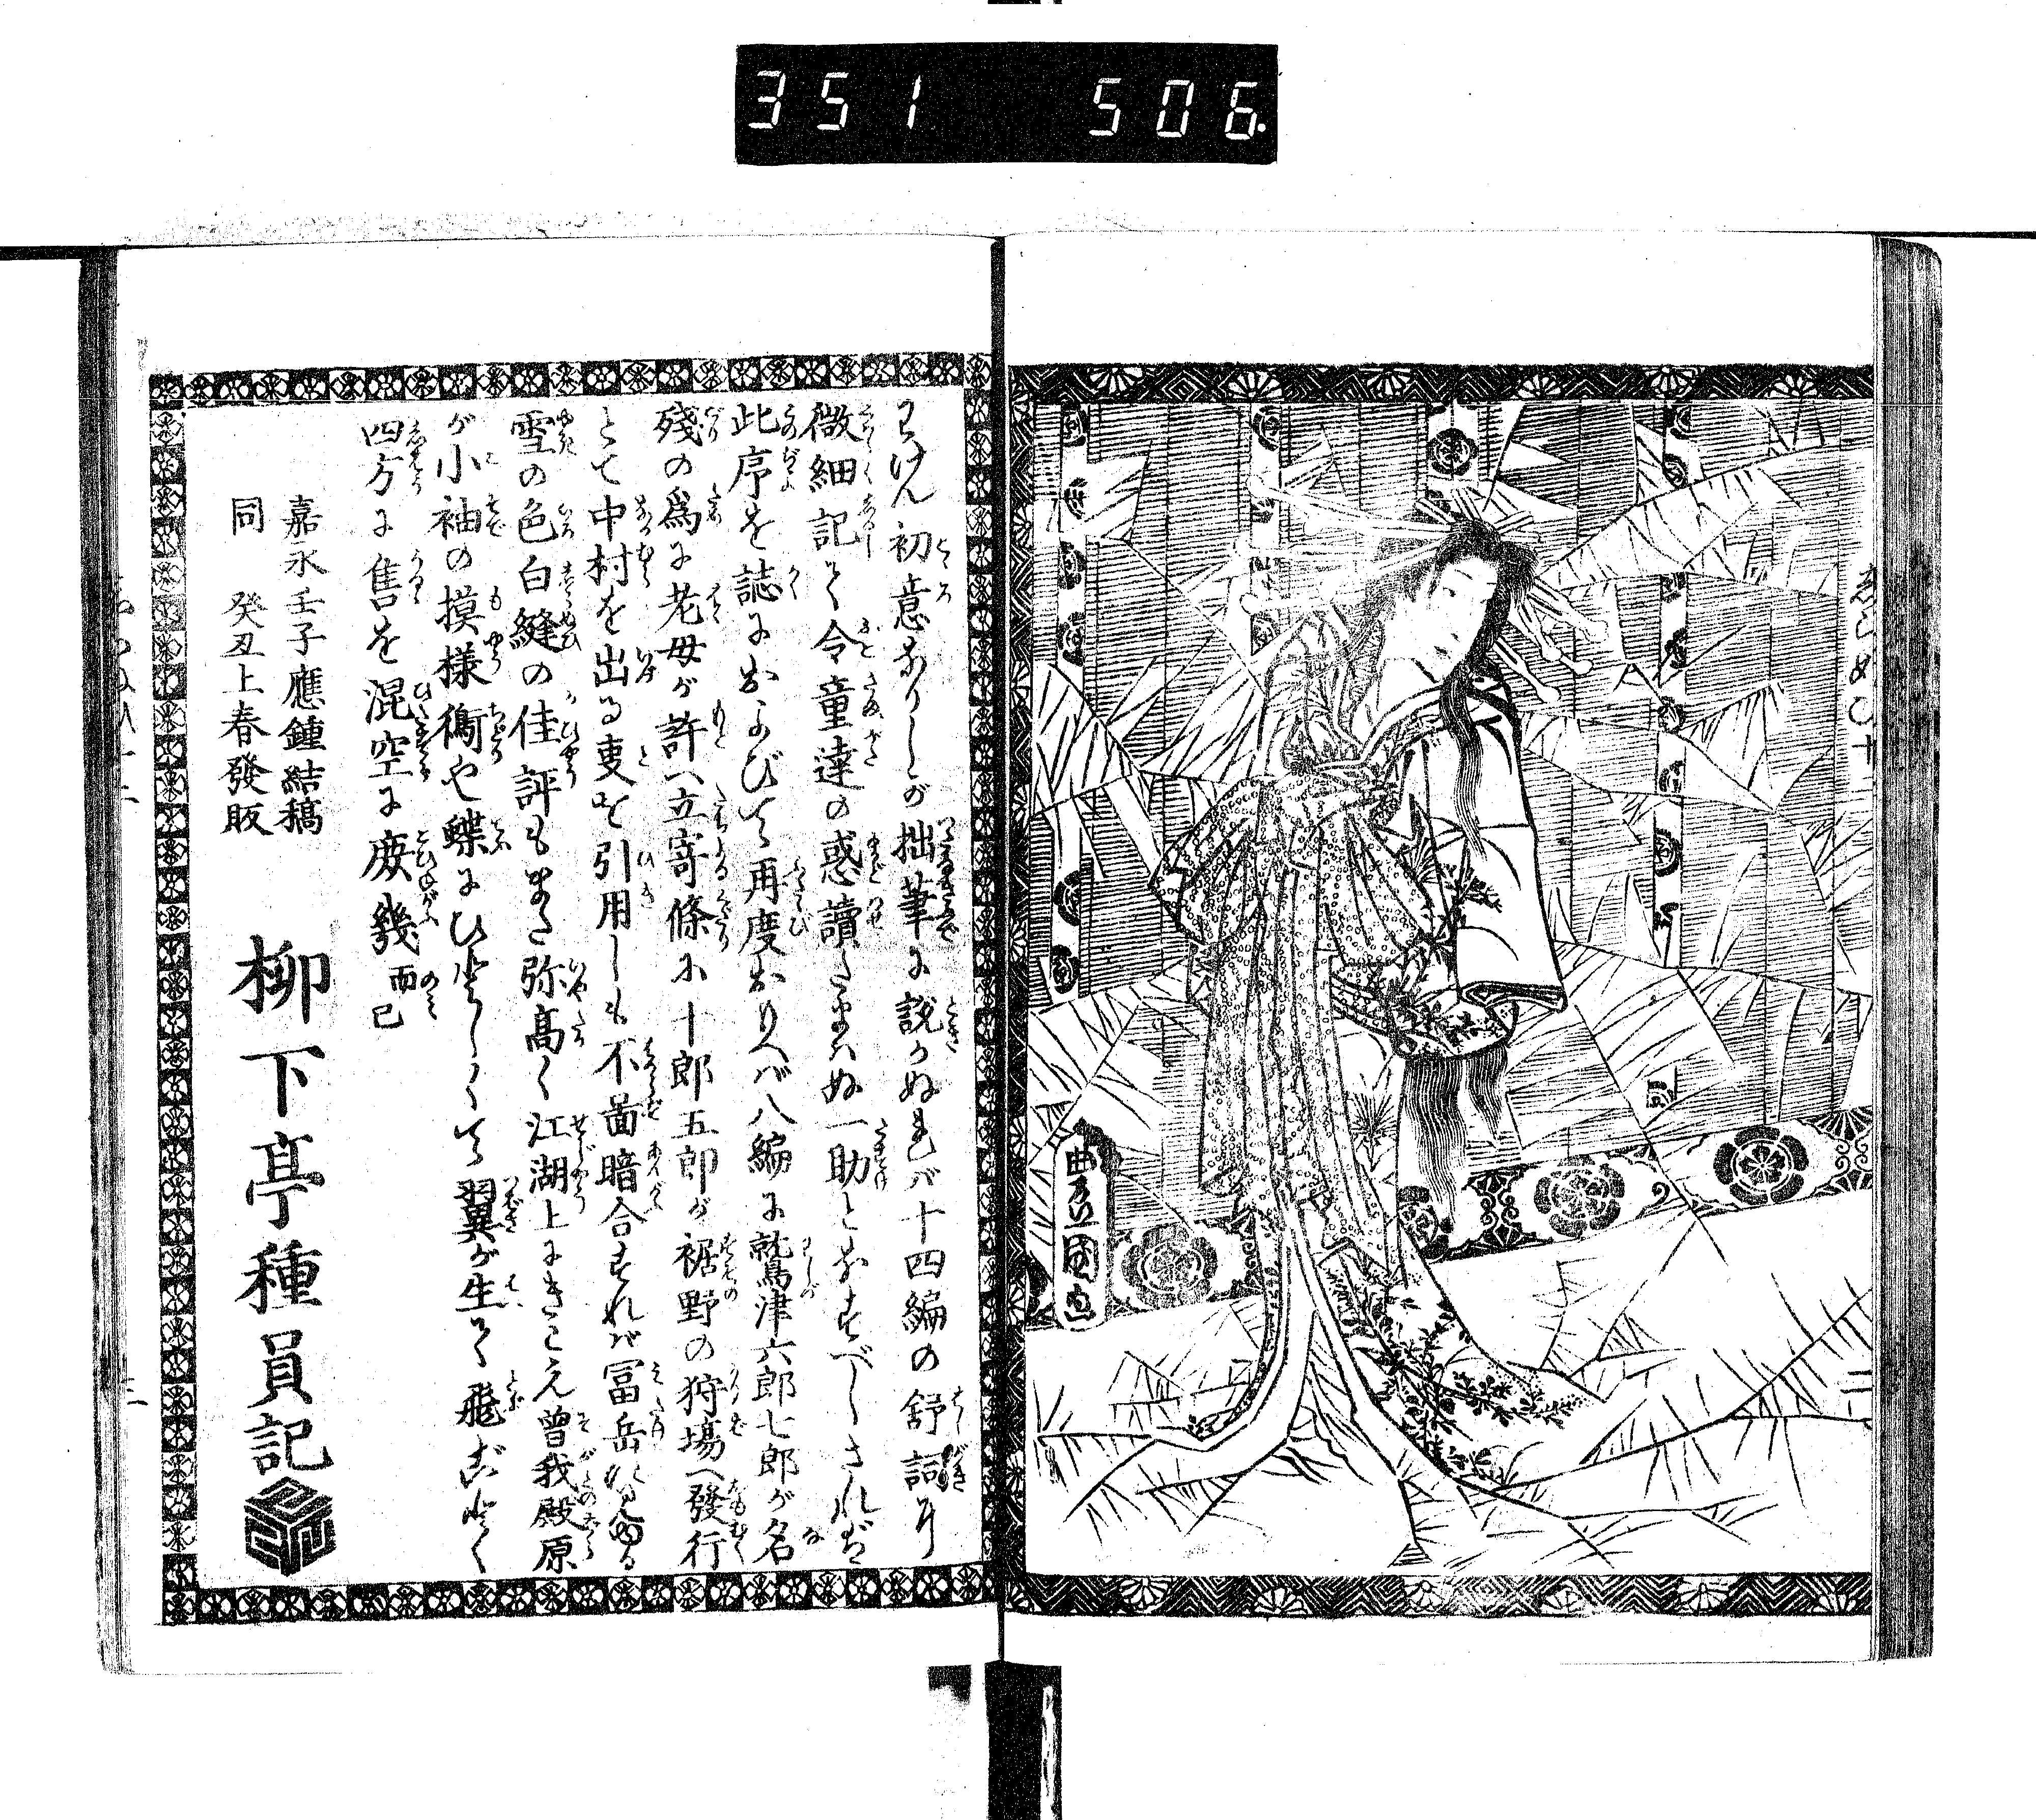 351 506.
しらぬひ十
曲亭国画
らけん初意ありしが拙筆に説かぬれバ十四編の舒詞に
微細記て令童達の惑讀たまハぬ一助とあすべしされど
此序を誌におよびて再度おもへバ八編に鷲津六郎七郎が名
残の為に老母が許へ立寄條に十郎五郎が裾野の狩場へ發行
とて中村を出る叓を引用しも不啚暗合すれバ冨岳に
雪の色白縫の佳評もまた弥高く江湖上にきこえ曽我殿原
が小袖の摸様鵆や蝶にひとしくて翼が生て飛ごとく
四方に售を混空に庶幾而已
嘉永壬子應鍾結稿
同 癸丑上春發販
柳下亭種員記